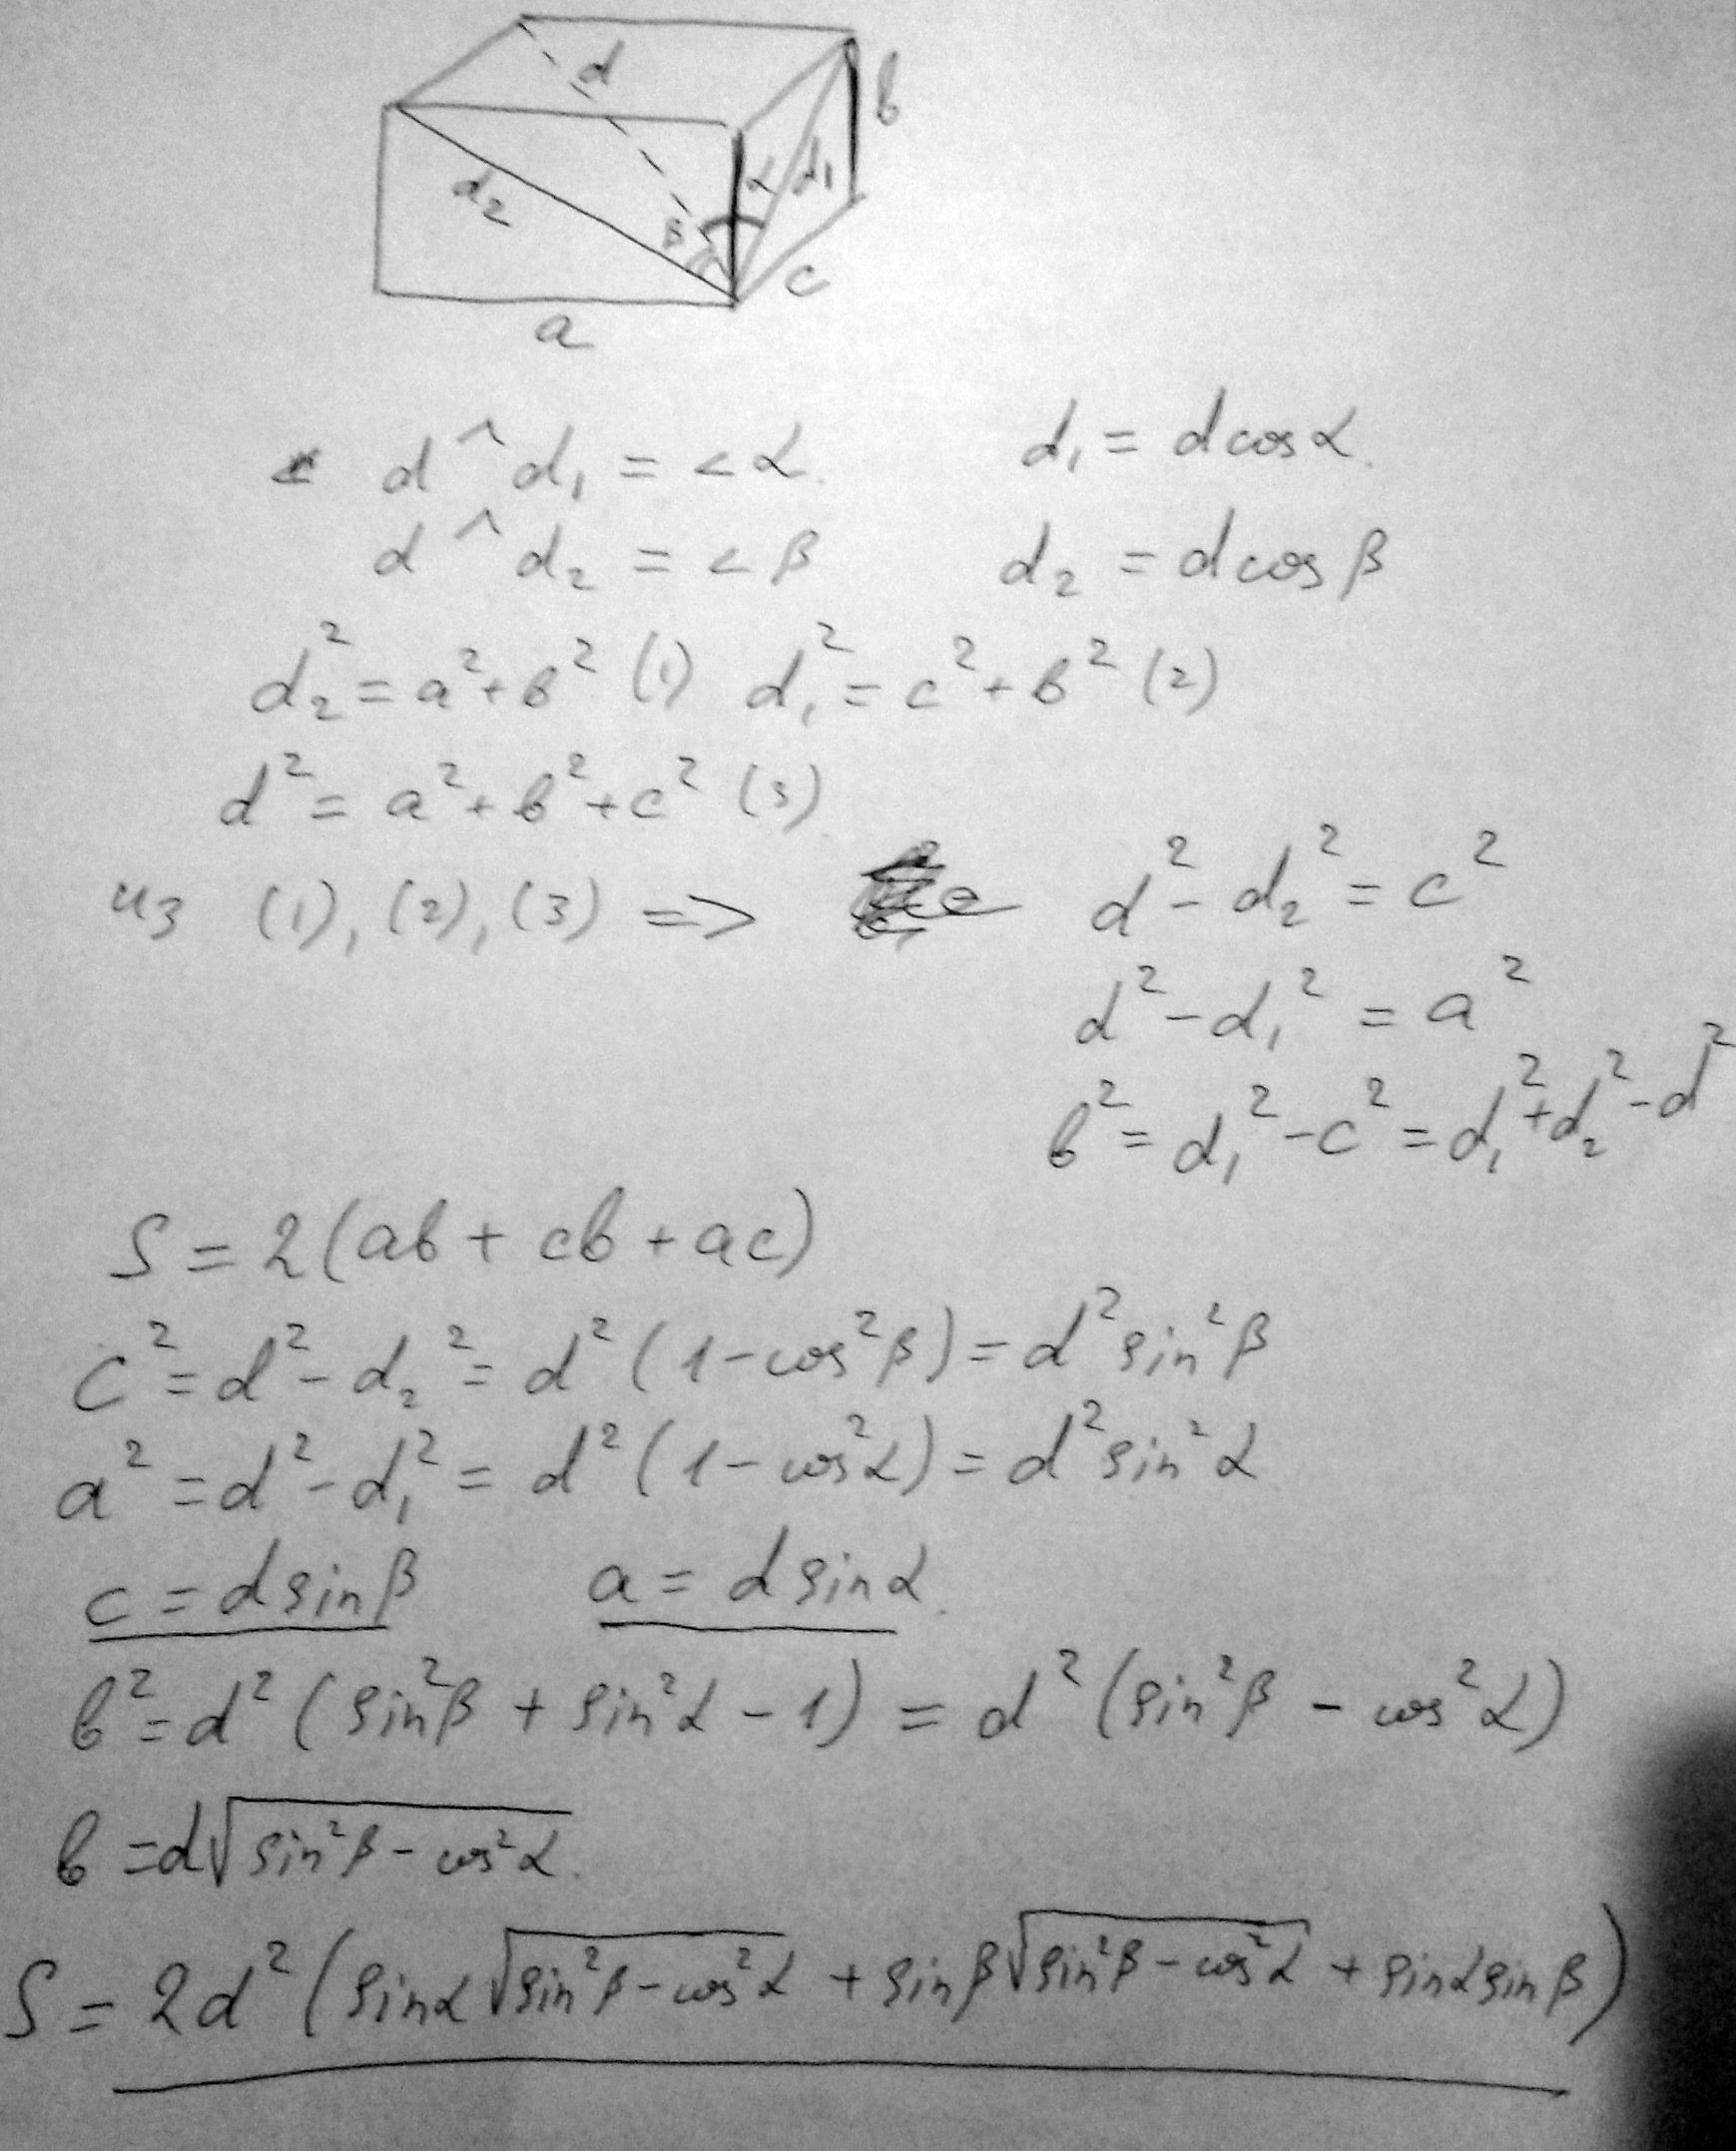 d
b
d₂
α
d₁
β
c
a
d ^ d₁ = <α
d₁ = d cos α
d ^ d₂ = <β
d₂ = d cos β
d₂² = a² + b² (1) d₁² = c² + b² (2)
d² = a² + b² + c² (3)
из (1), (2), (3) => d² - d₂² = c²
d² - d₁² = a²
b² = d₁² - c² = d₁² + d₂² - d²
S = 2(ab + cb + ac)
c² = d² - d₂² = d² (1 - cos²β) = d² sin²β
a² = d² - d₁² = d² (1 - cos²α) = d² sin²α
c = d sin β a = d sin α
b² = d² (sin²β + sin²α - 1) = d² (sin²β - cos²α)
b = d√(sin²β - cos²α)
S = 2d² (sin α √(sin²β - cos²α) + sin β √(sin²β - cos²α) + sin α sin β)